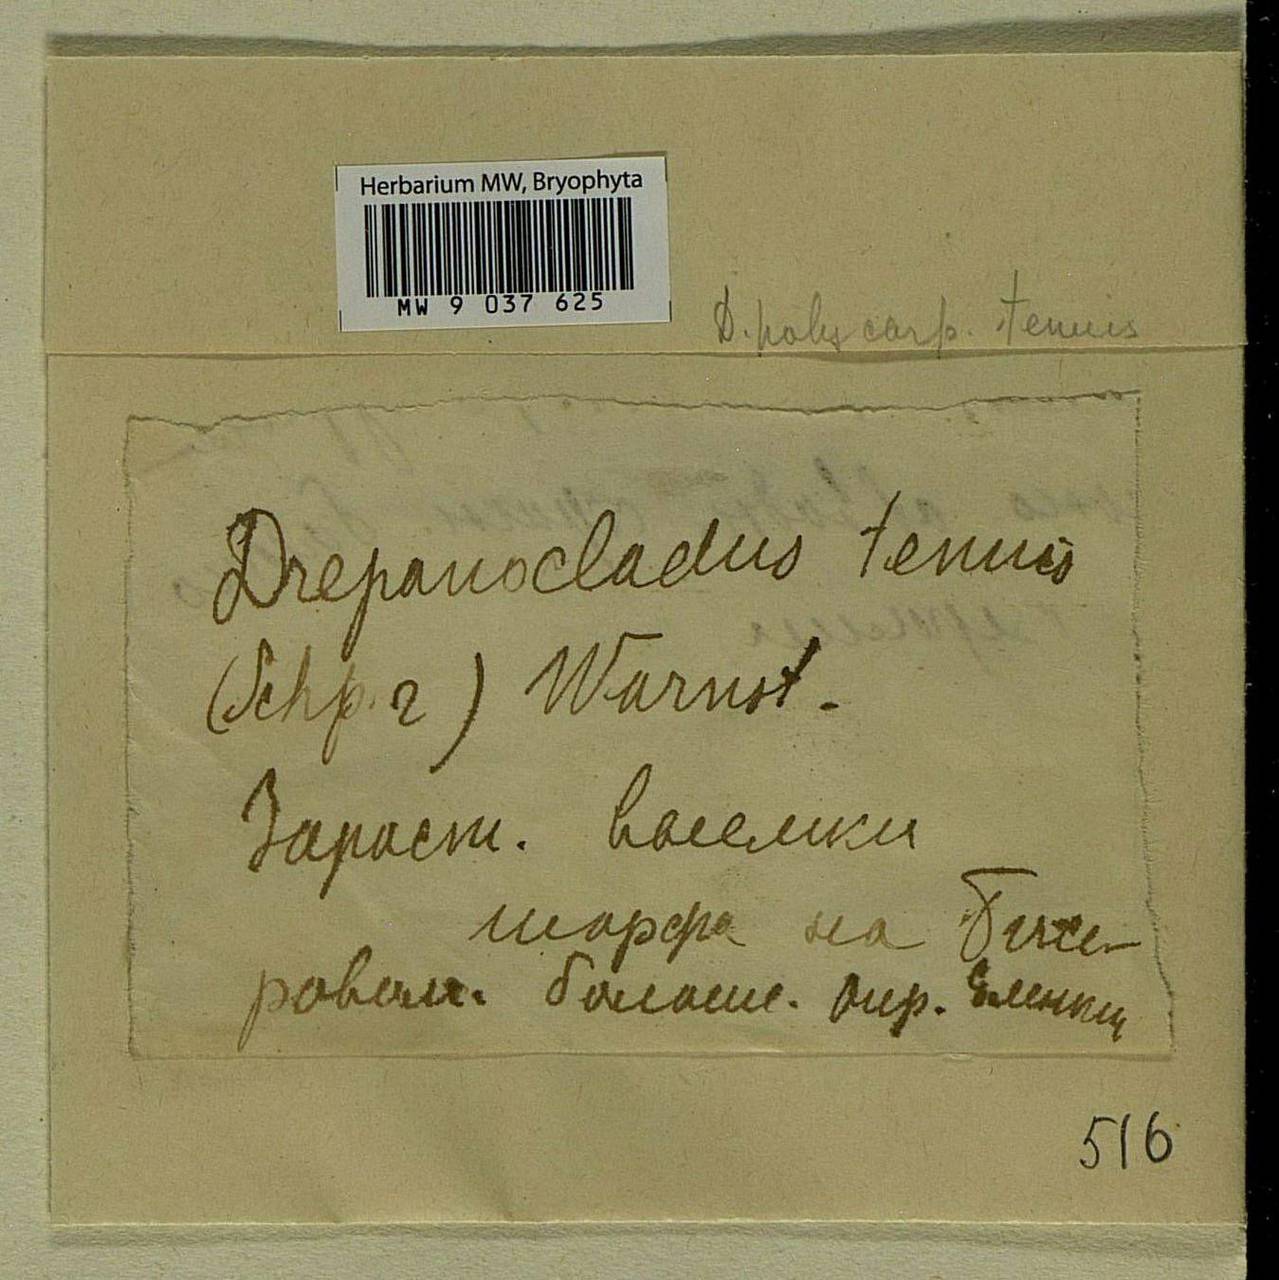 Herbarium MW, Bryophyta
MW 9 037 625
D. polycarp. tenuis
Drepanocladus tenuis
(Schp. г) Warnst.
Зараст. выемки
торфа на Бисе-
ровом. болоте. окр.
516